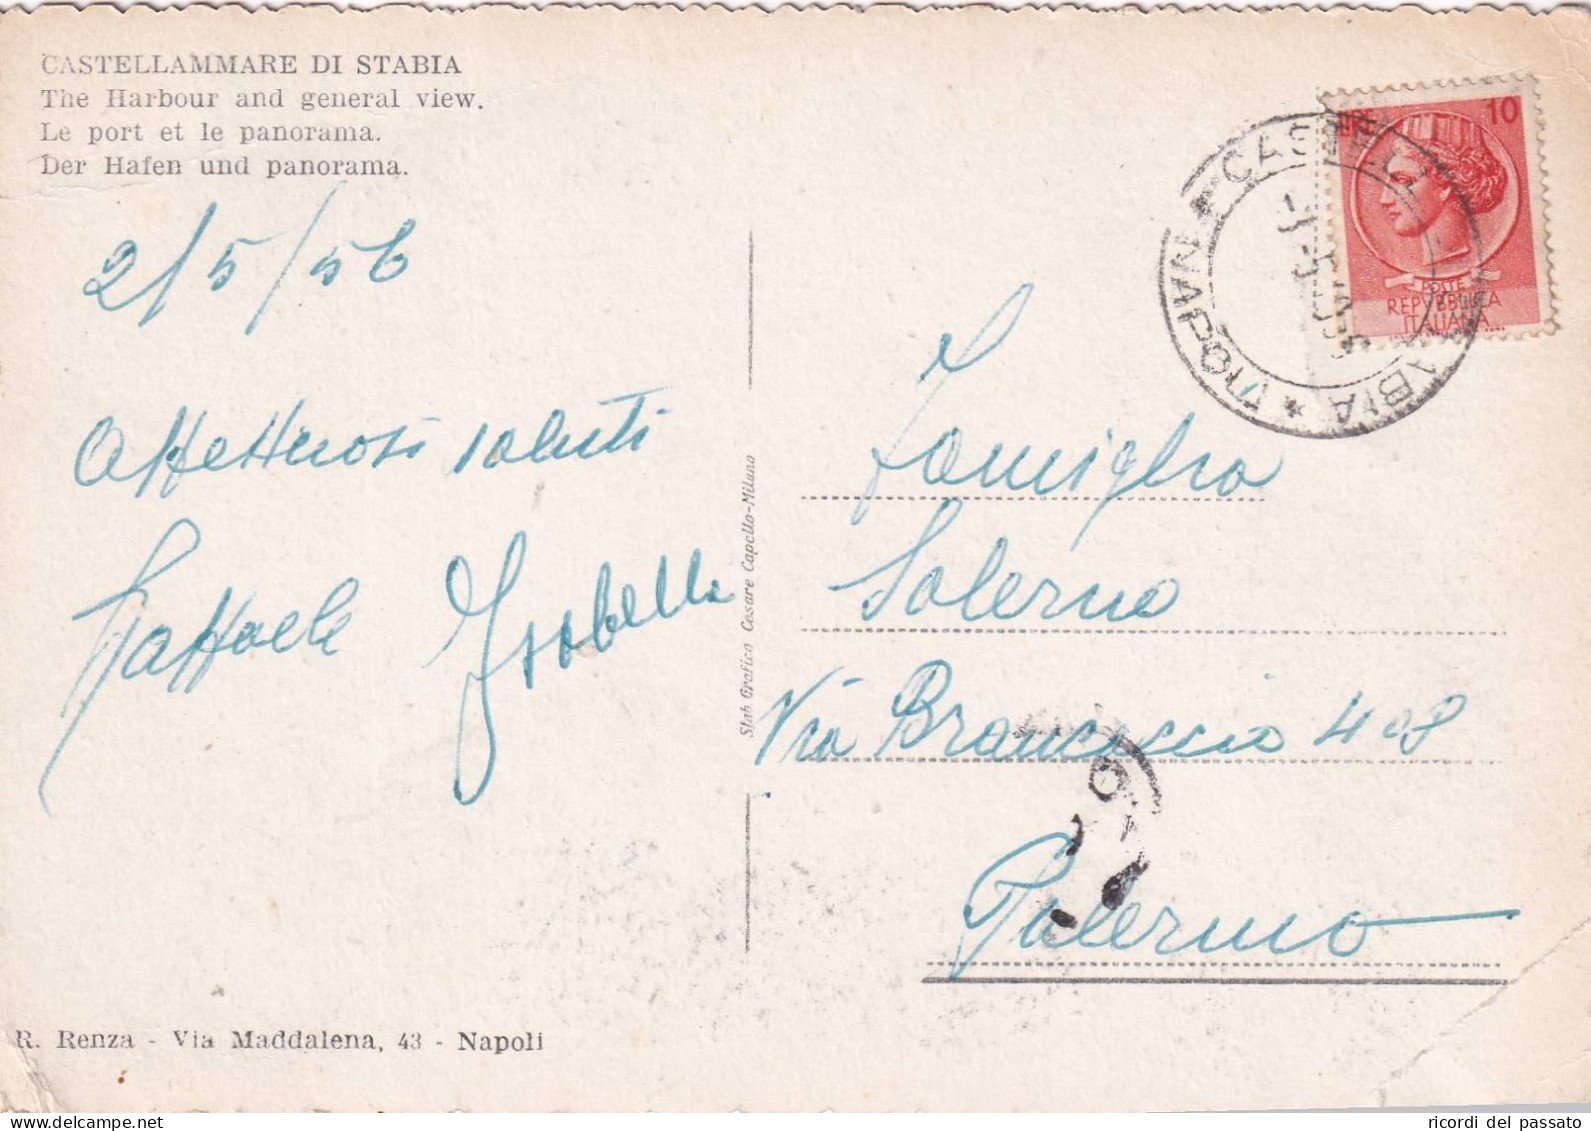 CASTELLAMMARE DI STABIA
The Harbour and general view.
Le port et le panorama.
Der Hafen und panorama.
2/5/56
Affettuosi saluti
Raffaele Ysabella
Stab. Grafico Cesare Capello-Milano
10
POSTE
REPVBBLICA
ITALIANA
CASTELL
ABIA
NAPOLI
Famiglia
Salerno
Via Brancaccio 408
Palermo
R. Renza - Via Maddalena, 43 - Napoli
ricordi del passato